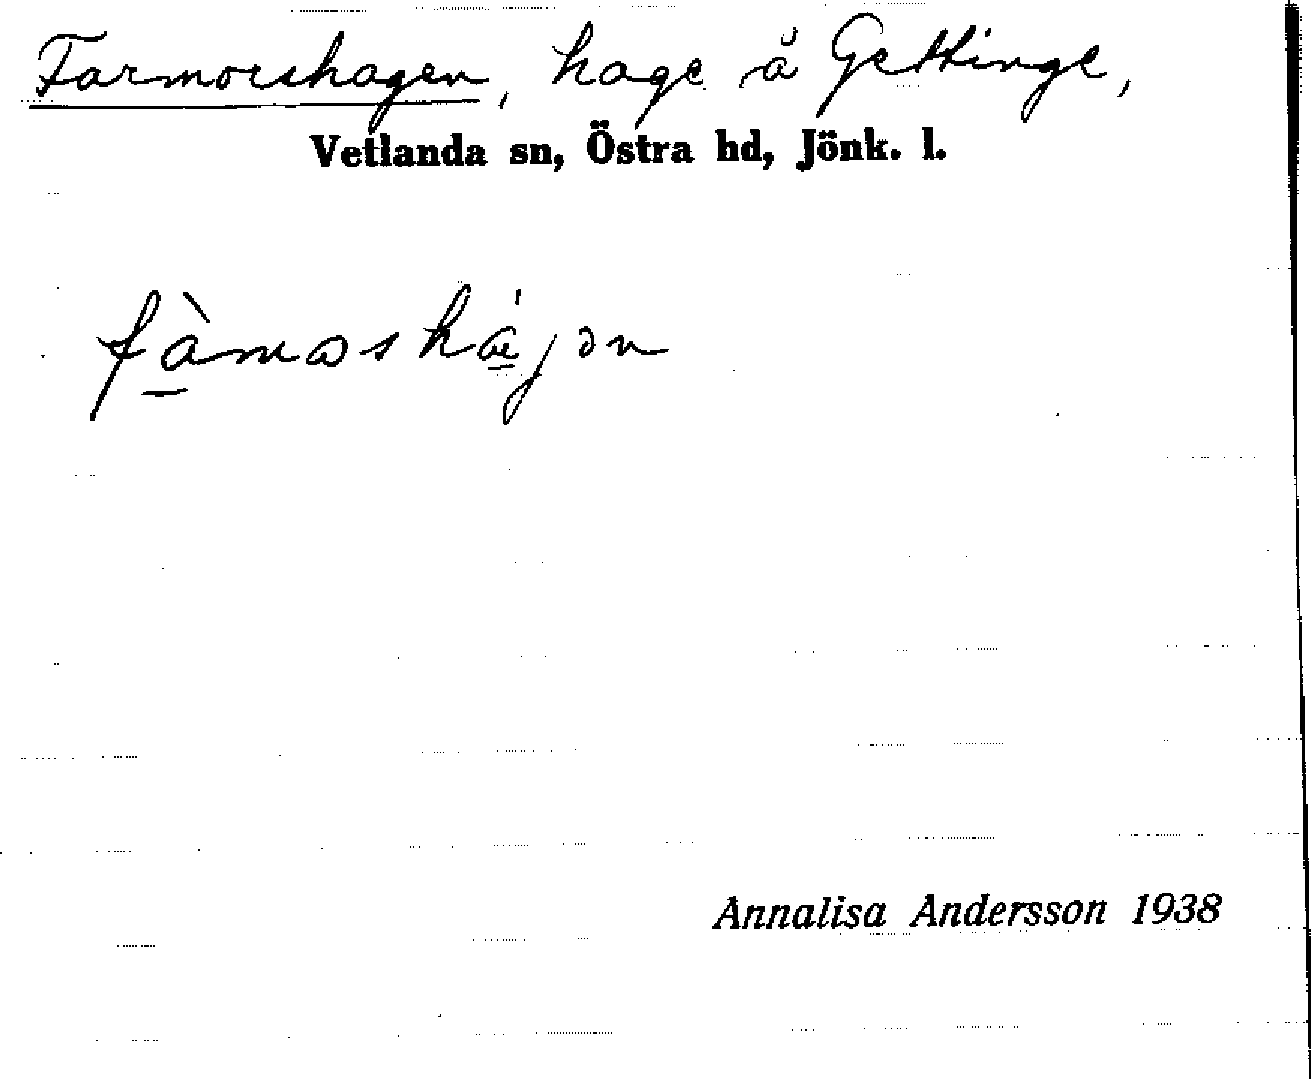 Farmorshagen, hage å Gettinge,
Vetlanda sn, Östra hd, Jönk. l.
fàmɷshájən
Annalisa Andersson 1938